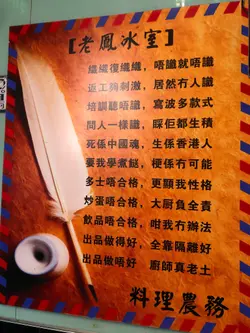 [老鳳冰室]
熾熾復熾熾，唔識就唔識
返工夠刺激，居然冇人識
培訓聽唔識，寫波多款式
問人一樣識，踩佢都生積
死係中國魂，生係香港人
要我學煮餸，梗係冇可能
多士唔合格，更顯我性格
炒蛋唔合格，大厨負全責
飲品唔合格，咁我冇辦法
出品做得好，全靠隔離好
出品做唔好，廚師真老土
料理農務